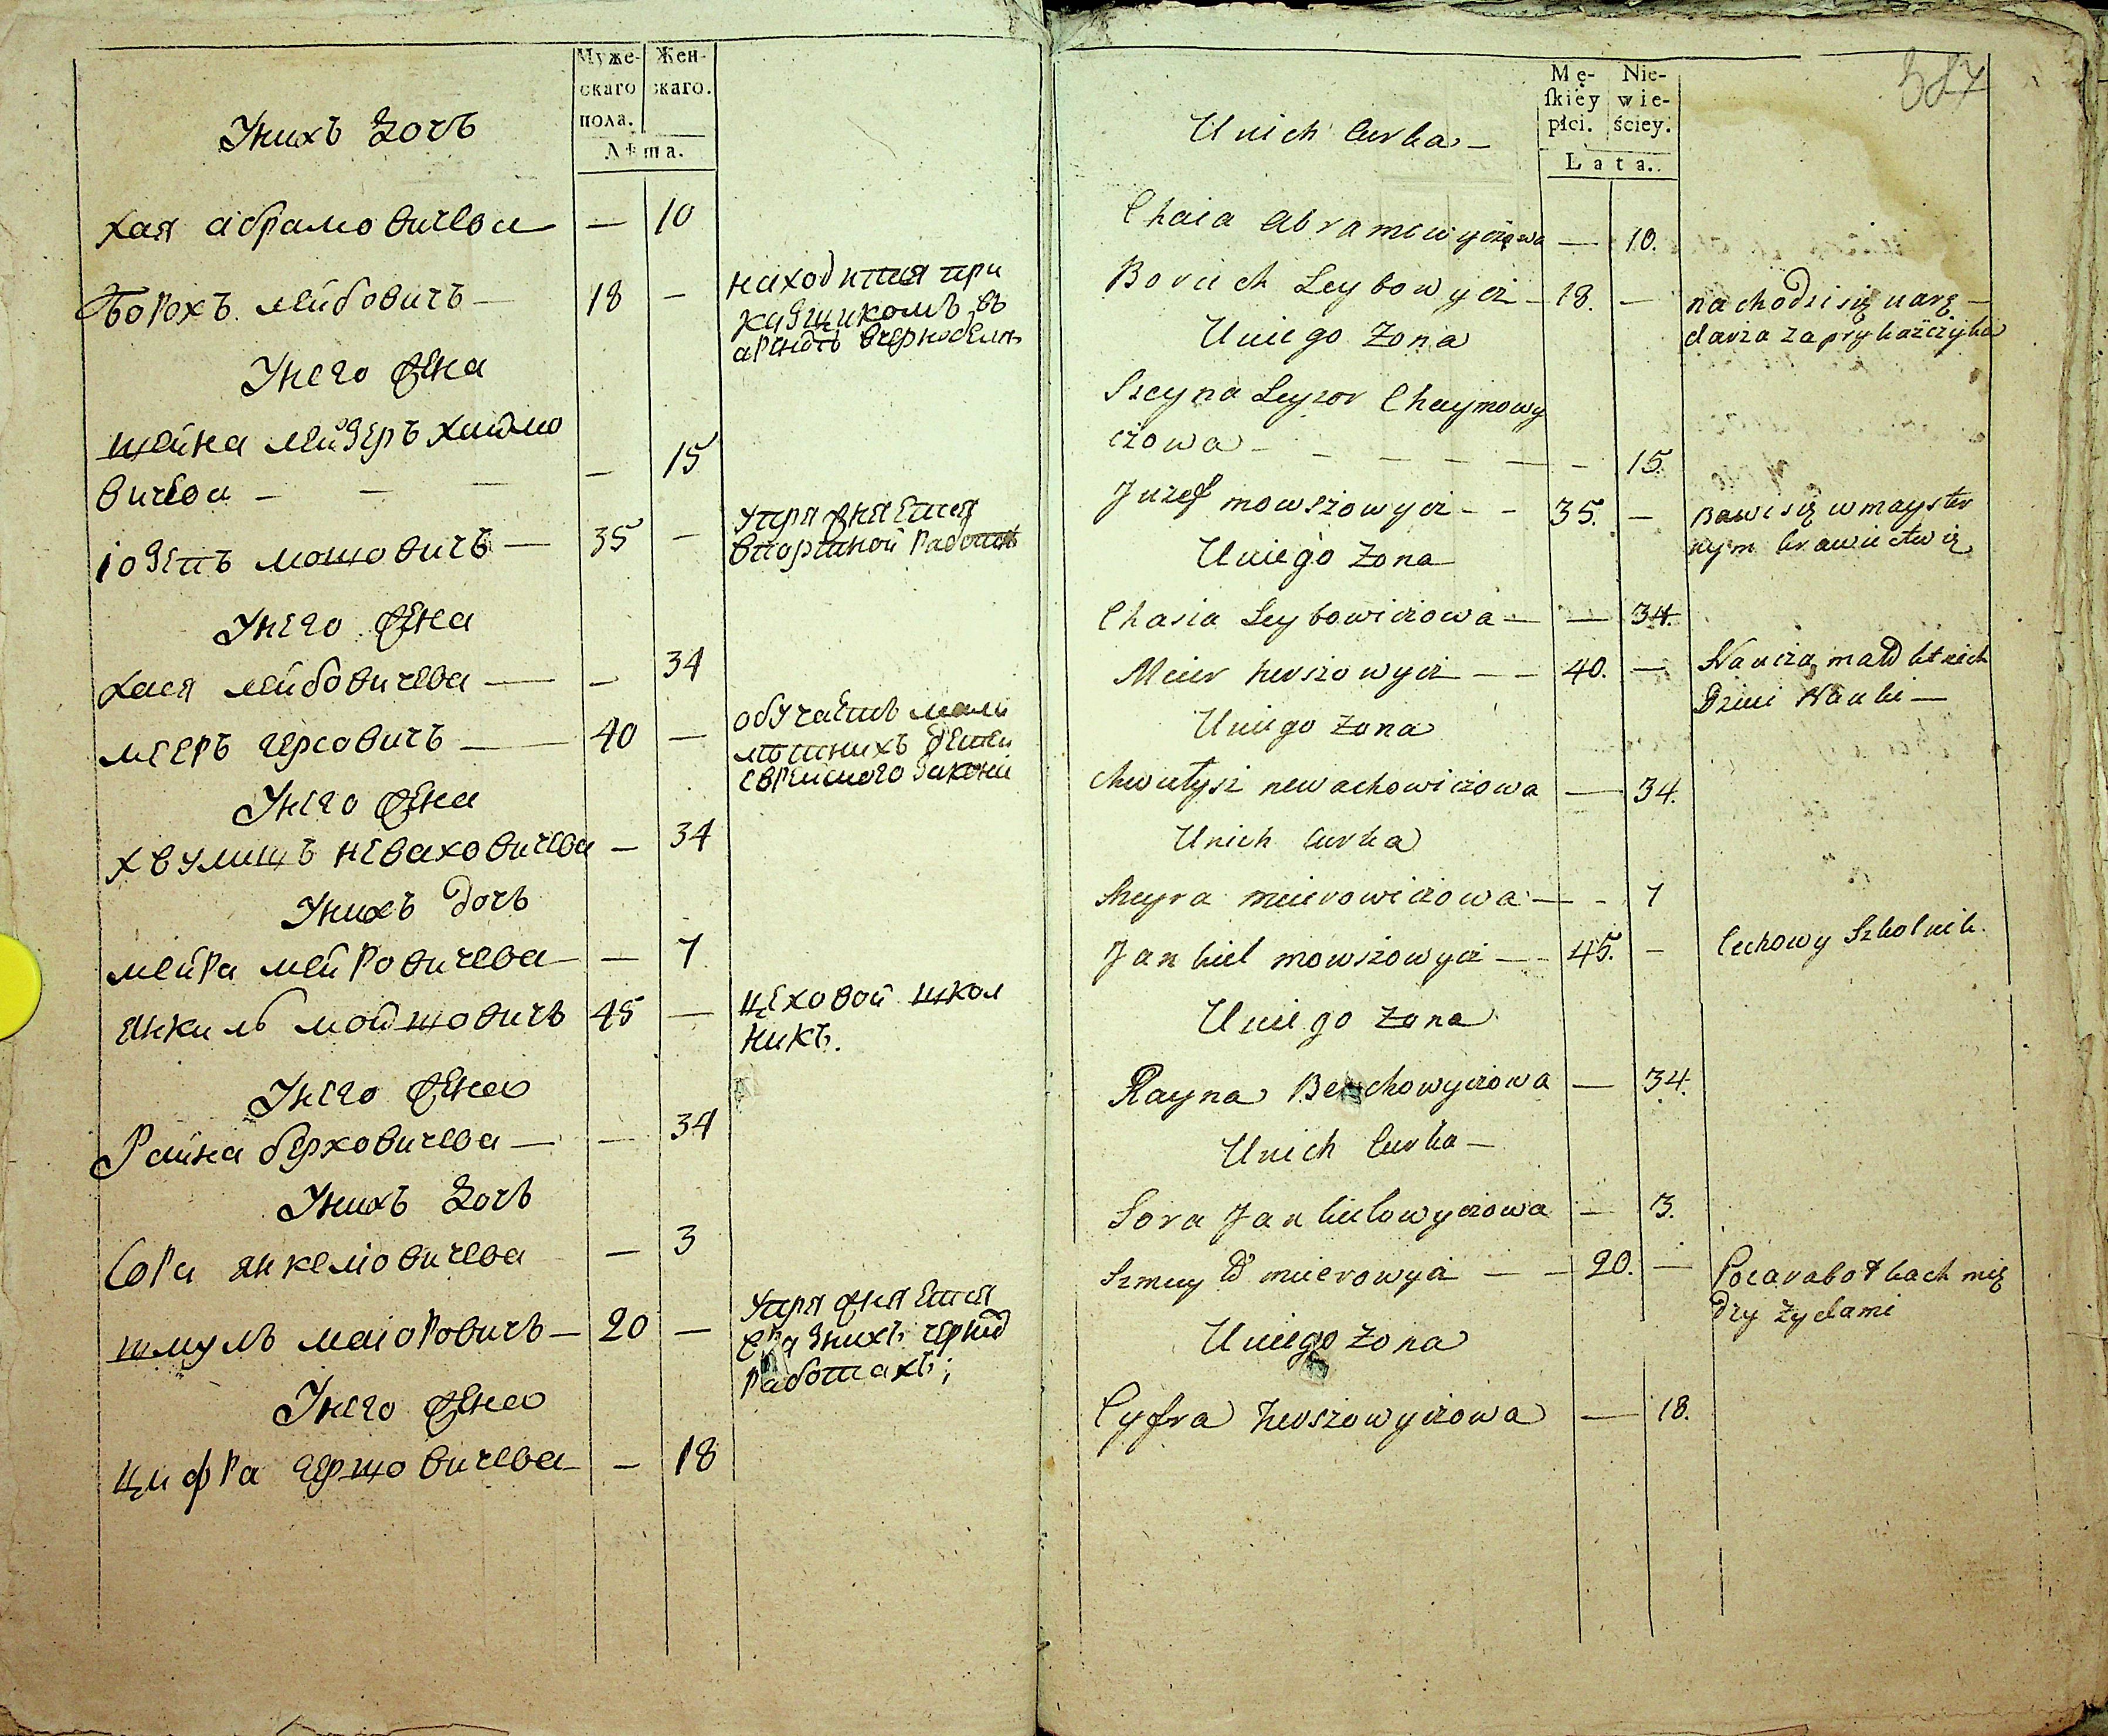 Муже-
скаго
пола.
Жен-
скаго.
Лѣта.
Унихъ Дочъ
хая абрамовичева — 10
Борохъ лейбовичъ — 18 —
находится при
кащикомъ въ
арендѣ
Унего жена
шейна лейзеръ хаймо
вичева — — — — 15
іозепъ мошовичъ — 35 —
упражняется
в портной работѣ
Унего жена
хася лейбовичева — — 34
мееръ герсовичъ — 40 —
обучаетъ мало
лѣтнихъ детей
еврейского закона
Унего жена
хвулишъ неваховичева — 34
Унихъ дочъ
мейра мейровичева — — 7
янкиль мовшовичъ 45 —
цеховой школ
никъ.
Унего жена
Райна берховичева — — 34
Унихъ Дочъ
Сора янкеліовичева — 3
шмулъ маіоровичъ — 20 —
упражняется
в разнихъ черны
работахъ;
Унего жена
цифра гершовичева — — 18
387
Mę-
ſkiey
płci.
Nie-
wie-
ściey.
Lata.
Unich Curka —
Chaia Abramowyczowa — 10.
Boruch Leybowycz — 18. —
nachodzi się u arę —
darza za prykazczyka
Uniego Zona
Szeyna Leyzor Chaymowy
czowa — — — — — — 15.
Juzef mowszowycz — — 35. —
Bawi się w mayster
nym krawiectwię
Uniego Zona
Chasia Leybowiczowa — — 34.
Meier herszowycz — — 40. —
Naucza małoletnich
Dzieci Nauki —
Uniego Zona
chwulysz newachowiczowa — 34.
Unich Curka
Meyra meierowiczowa — - 7
Jankiel mowszowycz — - 45. —
Cechowy Szkolnik.
Uniego Zona
Rayna Berchowyczowa — 34.
Unich Curka —
Sora Jankielowyczowa — 3.
Szmuyło meierowycz — — 20. —
Po zarabotkach mię
dzy Zydami
Uniego Zona
Cyfra herszowyczowa — 18.